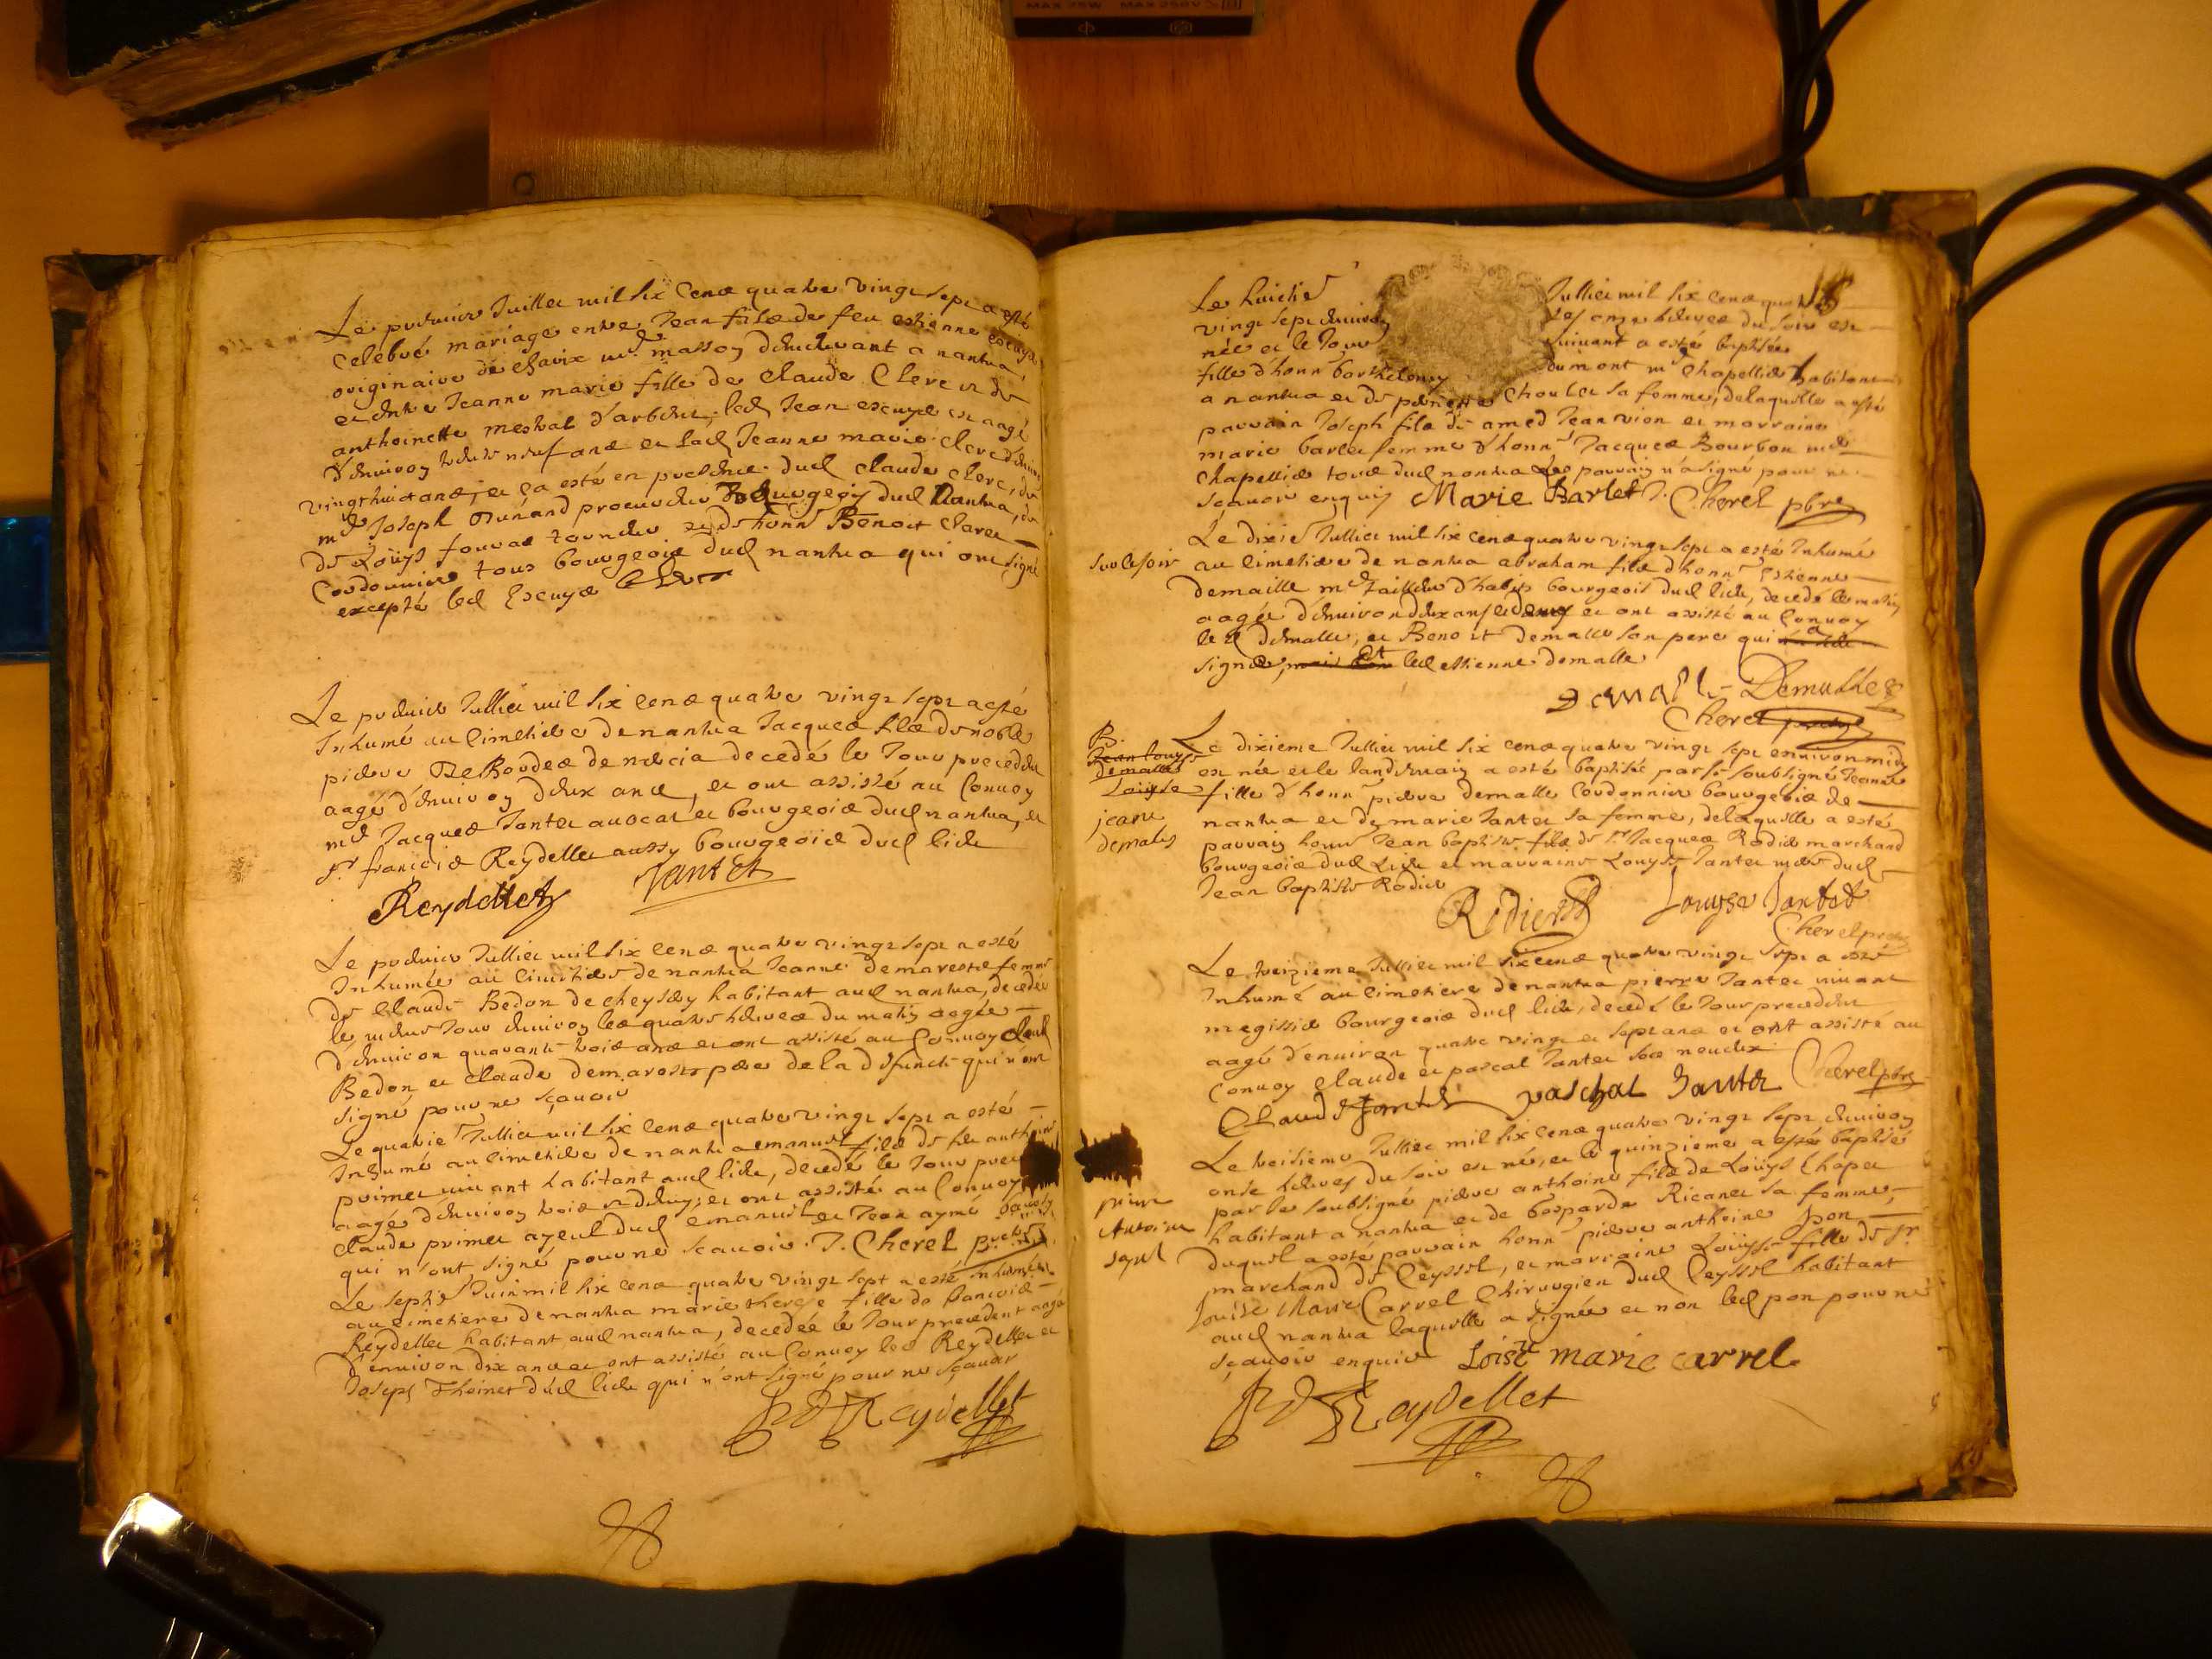 Le premier Juillet mil six cens quatre vingt sept a esté
celebré mariage entre Jean fils de feu estienne escuyé
originaire de chavix md masson demeurant a nantua,
et entre Jeanne marie fille de claude Clerc et de
anthoinette mestral d'arbent, led Jean escuyé est aagé
d'environ trente neuf ans et lad Jeanne marie clerc d'environ
vingt huict ans, et ça esté en presence dud claude clerc, de
md Joseph Durand procureur Bourgeois dud Nantua, de
de Loüys fourat tourneur et de honn Benoit claret
Cordonnier tous bourgeois dud nantua qui ont signé
excepté led Escuyé
Le premier Juillet mil six cens quatre vingt sept a esté
Inhumé au cimetiere de nantua Jacques fils de noble
pierre DeBordes de decedé le Jour precedent
aagé d'environ deux ans, et ont assisté au Convoy
md Jacques Jantet avocat et bourgeois dud nantua, et
sr françois Reydellet aussy bourgeois dud lieu
Reydellet Jantet
Le premier Juillet mil six cens quatre vingt sept a esté
Inhumée au cimetiere de nantua Jeanne demarest femme
de Claude Bedon de cheysery habitant aud nantua, decedée
le mesme Jour environ les quatre heures du matin aagée
d'environ quarante trois ans et ont assisté au Convoy led
Bedon et claude demarest pere de la defuncte qui n'ont
signé pour ne sçavoir
Le quatrie Juillet mil six cens quatre vingt sept a esté
Inhumé au cimetiere de nantua emanuel fils de feu anthoine
primet vivant habitant aud lieu, decedé le Jour
aagé d'environ trois et demy, et ont assisté au Convoy
claude primet ayeul dud emanuel et Jean aymé
qui n'ont signé pour ne scavoir. J. Cherel
Le septie Juin mil six cens quatre vingt sept a esté inhumée
au cimetiere de nantua marie therese fille de francois
Reydellet habitant aud nantua, decedée le Jour precedent aagé
d'environ dix ans et ont assisté au Convoy led Reydellet et
Joseph Thoinet dud lieu qui n'ont signé pour ne sçavoir
Reydellet
Le huictie Juillet mil six cens
vingt sept environ les onze heures du soir est
née et le Jour suivant a esté baptisée
fille d'honn barthelemy dumont md chapellier habitant
a nantua et de pernette Choulet sa femme, de laquelle a esté
parrain Joseph fils de amed Jean vion et marraine
marie barlet femme d'honn Jacques Bourbon md
Chapellier tous dud nantua parrain n'a signé pour ne
scavoir enquis Marie Barlet J. Cherel pbre
Le dixie Juillet mil six cens quatre vingt sept a esté Inhumé
sur le soir au cimetiere de nantua abraham fils d'honn Estienne
demalle md tailleur d'habis bourgeois dud lieu, decedé le matin
aagée d'environ deux ans et demy et ont assisté au Convoy
led demalle, et Benoit demalle son pere qui a
signé, et led estienne demalle
Demalle Demalle
Cherel
B.
Jean Louys
demalle
Louyse
jeane
demales
Le dixieme Juillet mil six cens quatre vingt sept environ midy
est née et le landemain a esté baptisée par le soubsigné Jeanne
fille d'honn pierre demalle Cordonnier bourgeois de
nantua et de marie Jantet sa femme, de laquelle a esté
parrain honn Jean baptiste fils de sr Jacques Rodier marchand
bourgeois dud Lieu et marraine Louyse Jantet mere dud
Jean baptiste Rodier
Rodier Louyse Jantet
Cherel
Le treizieme Juillet mil six cens quatre vingt sept a esté
Inhumé au cimetiere de nantua pierre Jantet vivant
megissier bourgeois dud lieu, decedé le Jour precedent
aagé d'environ quatre vingt et sept ans et ont assisté au
Convoy claude et pascal Jantet ses neveux
Claude Jantet paschal Jantet Cherel pbre
Le treisieme Juillet mil six cens quatre vingt sept environ
onse heures du soir est né, et le quinzieme a esté baptisé
par le soubsigné pierre anthoine fils de Loüys Chapel
habitant a nantua et de gasparde Ricanet sa femme,
Antoine
duquel a esté parrain honn pierre anthoine pon
marchand de Ceyssel, et marraine Loüyse fille de sr
Louise Marie Carrel Chirurgien dud Ceyssel habitant
aud nantua laquelle a signée et non led pon pour ne
sçavoir enquis Loise marie carrel
Reydellet